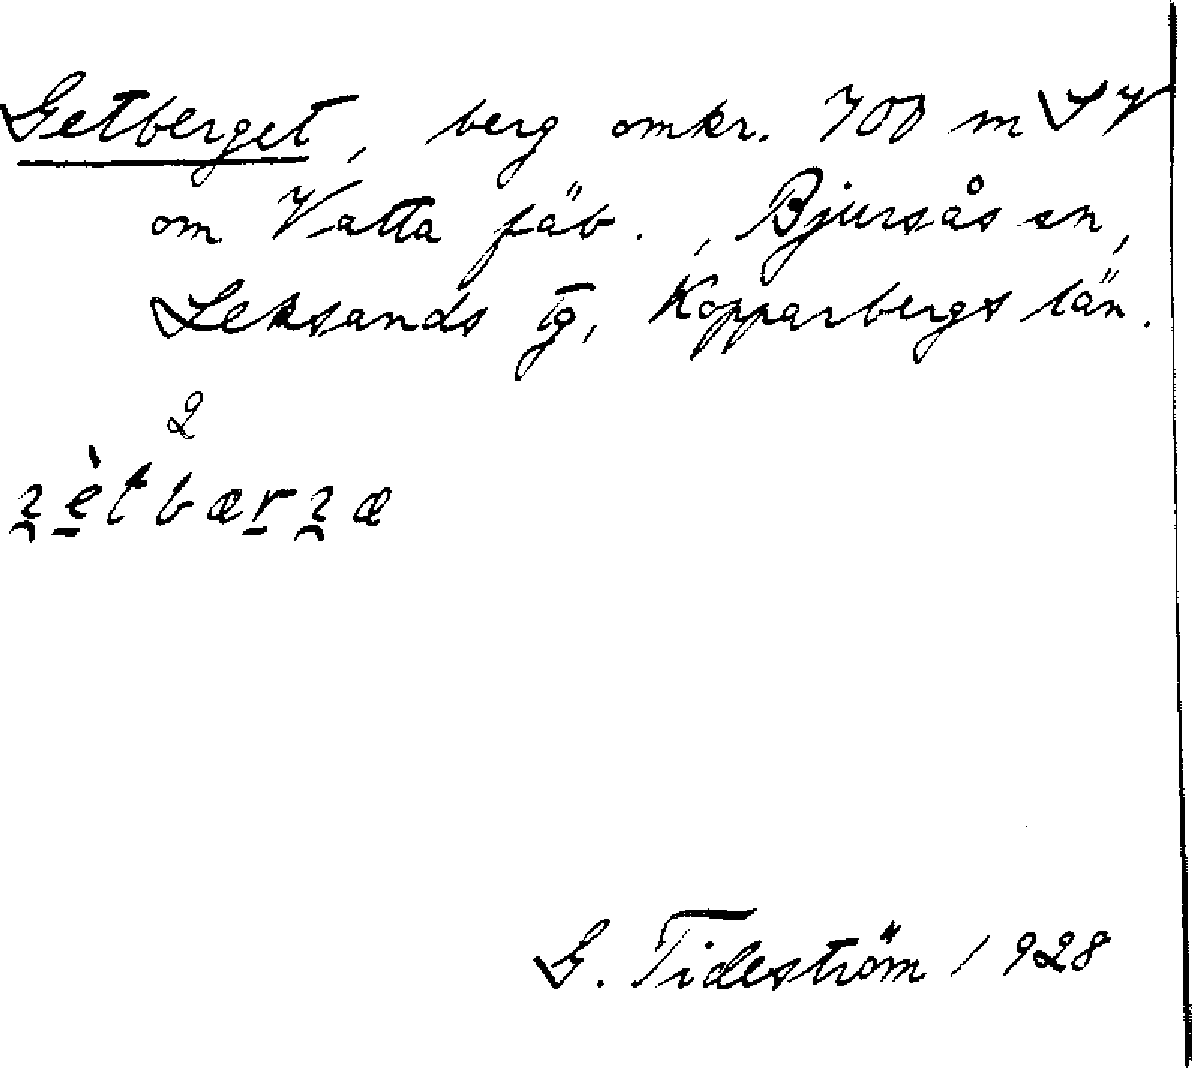 Getberget, berg omkr. 700 m SV
om Vatta fäb., Bjursås sn,
Leksands tg, Kopparbergs län.
2
G. Tideström 1928